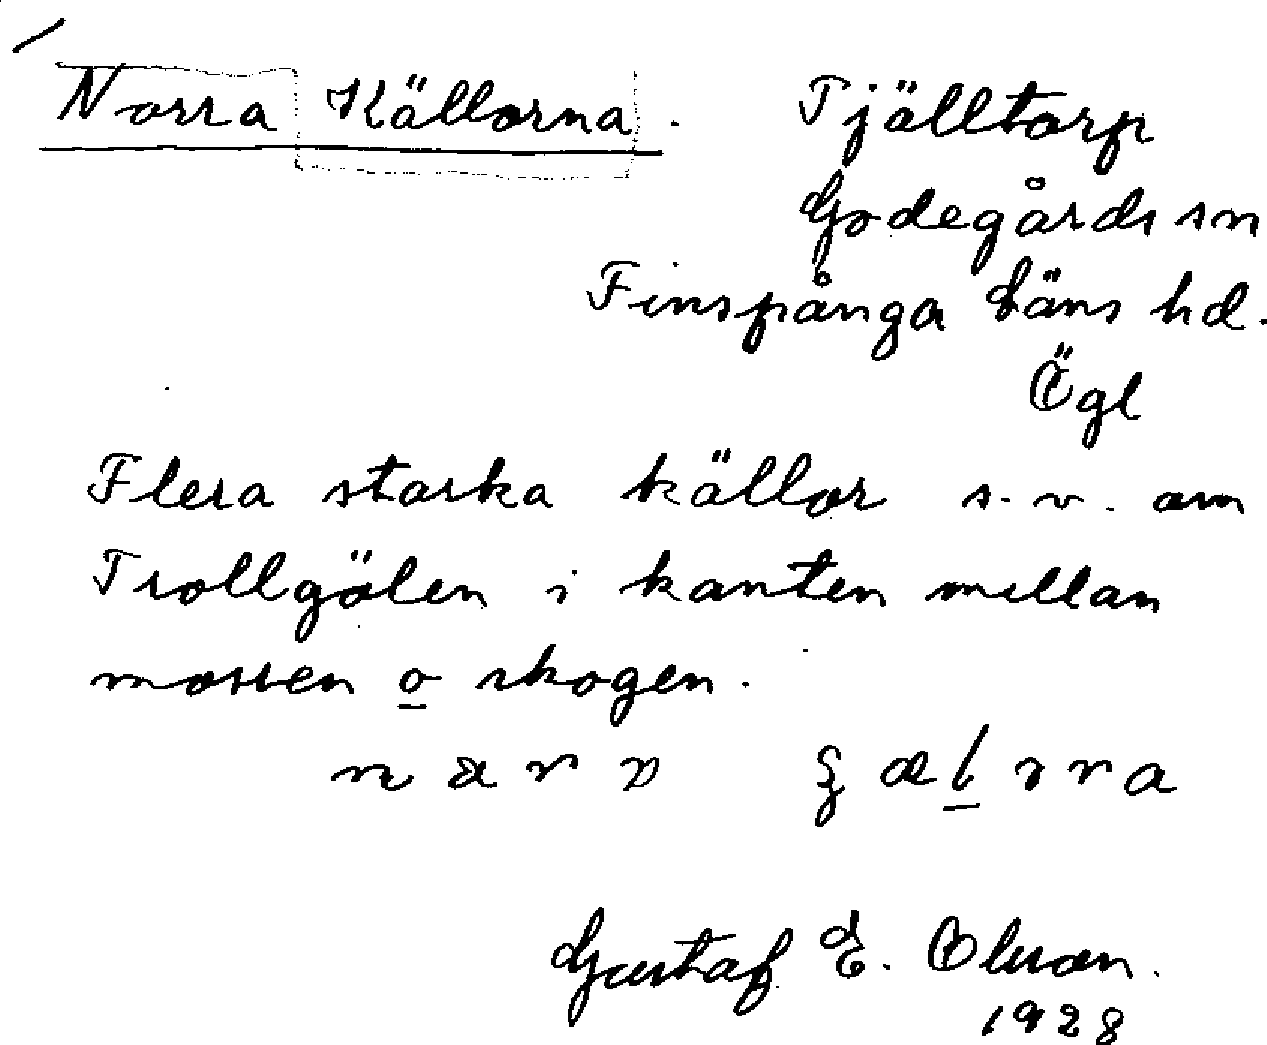 Norra Källorna. Tjälltorp
Godegårds sn
Finspånga läns hd.
Ögl
Flera starka källor s.v. om
Trollgölen i kanten mellan
mossen o skogen.
Gustaf E. Olsson.
1928